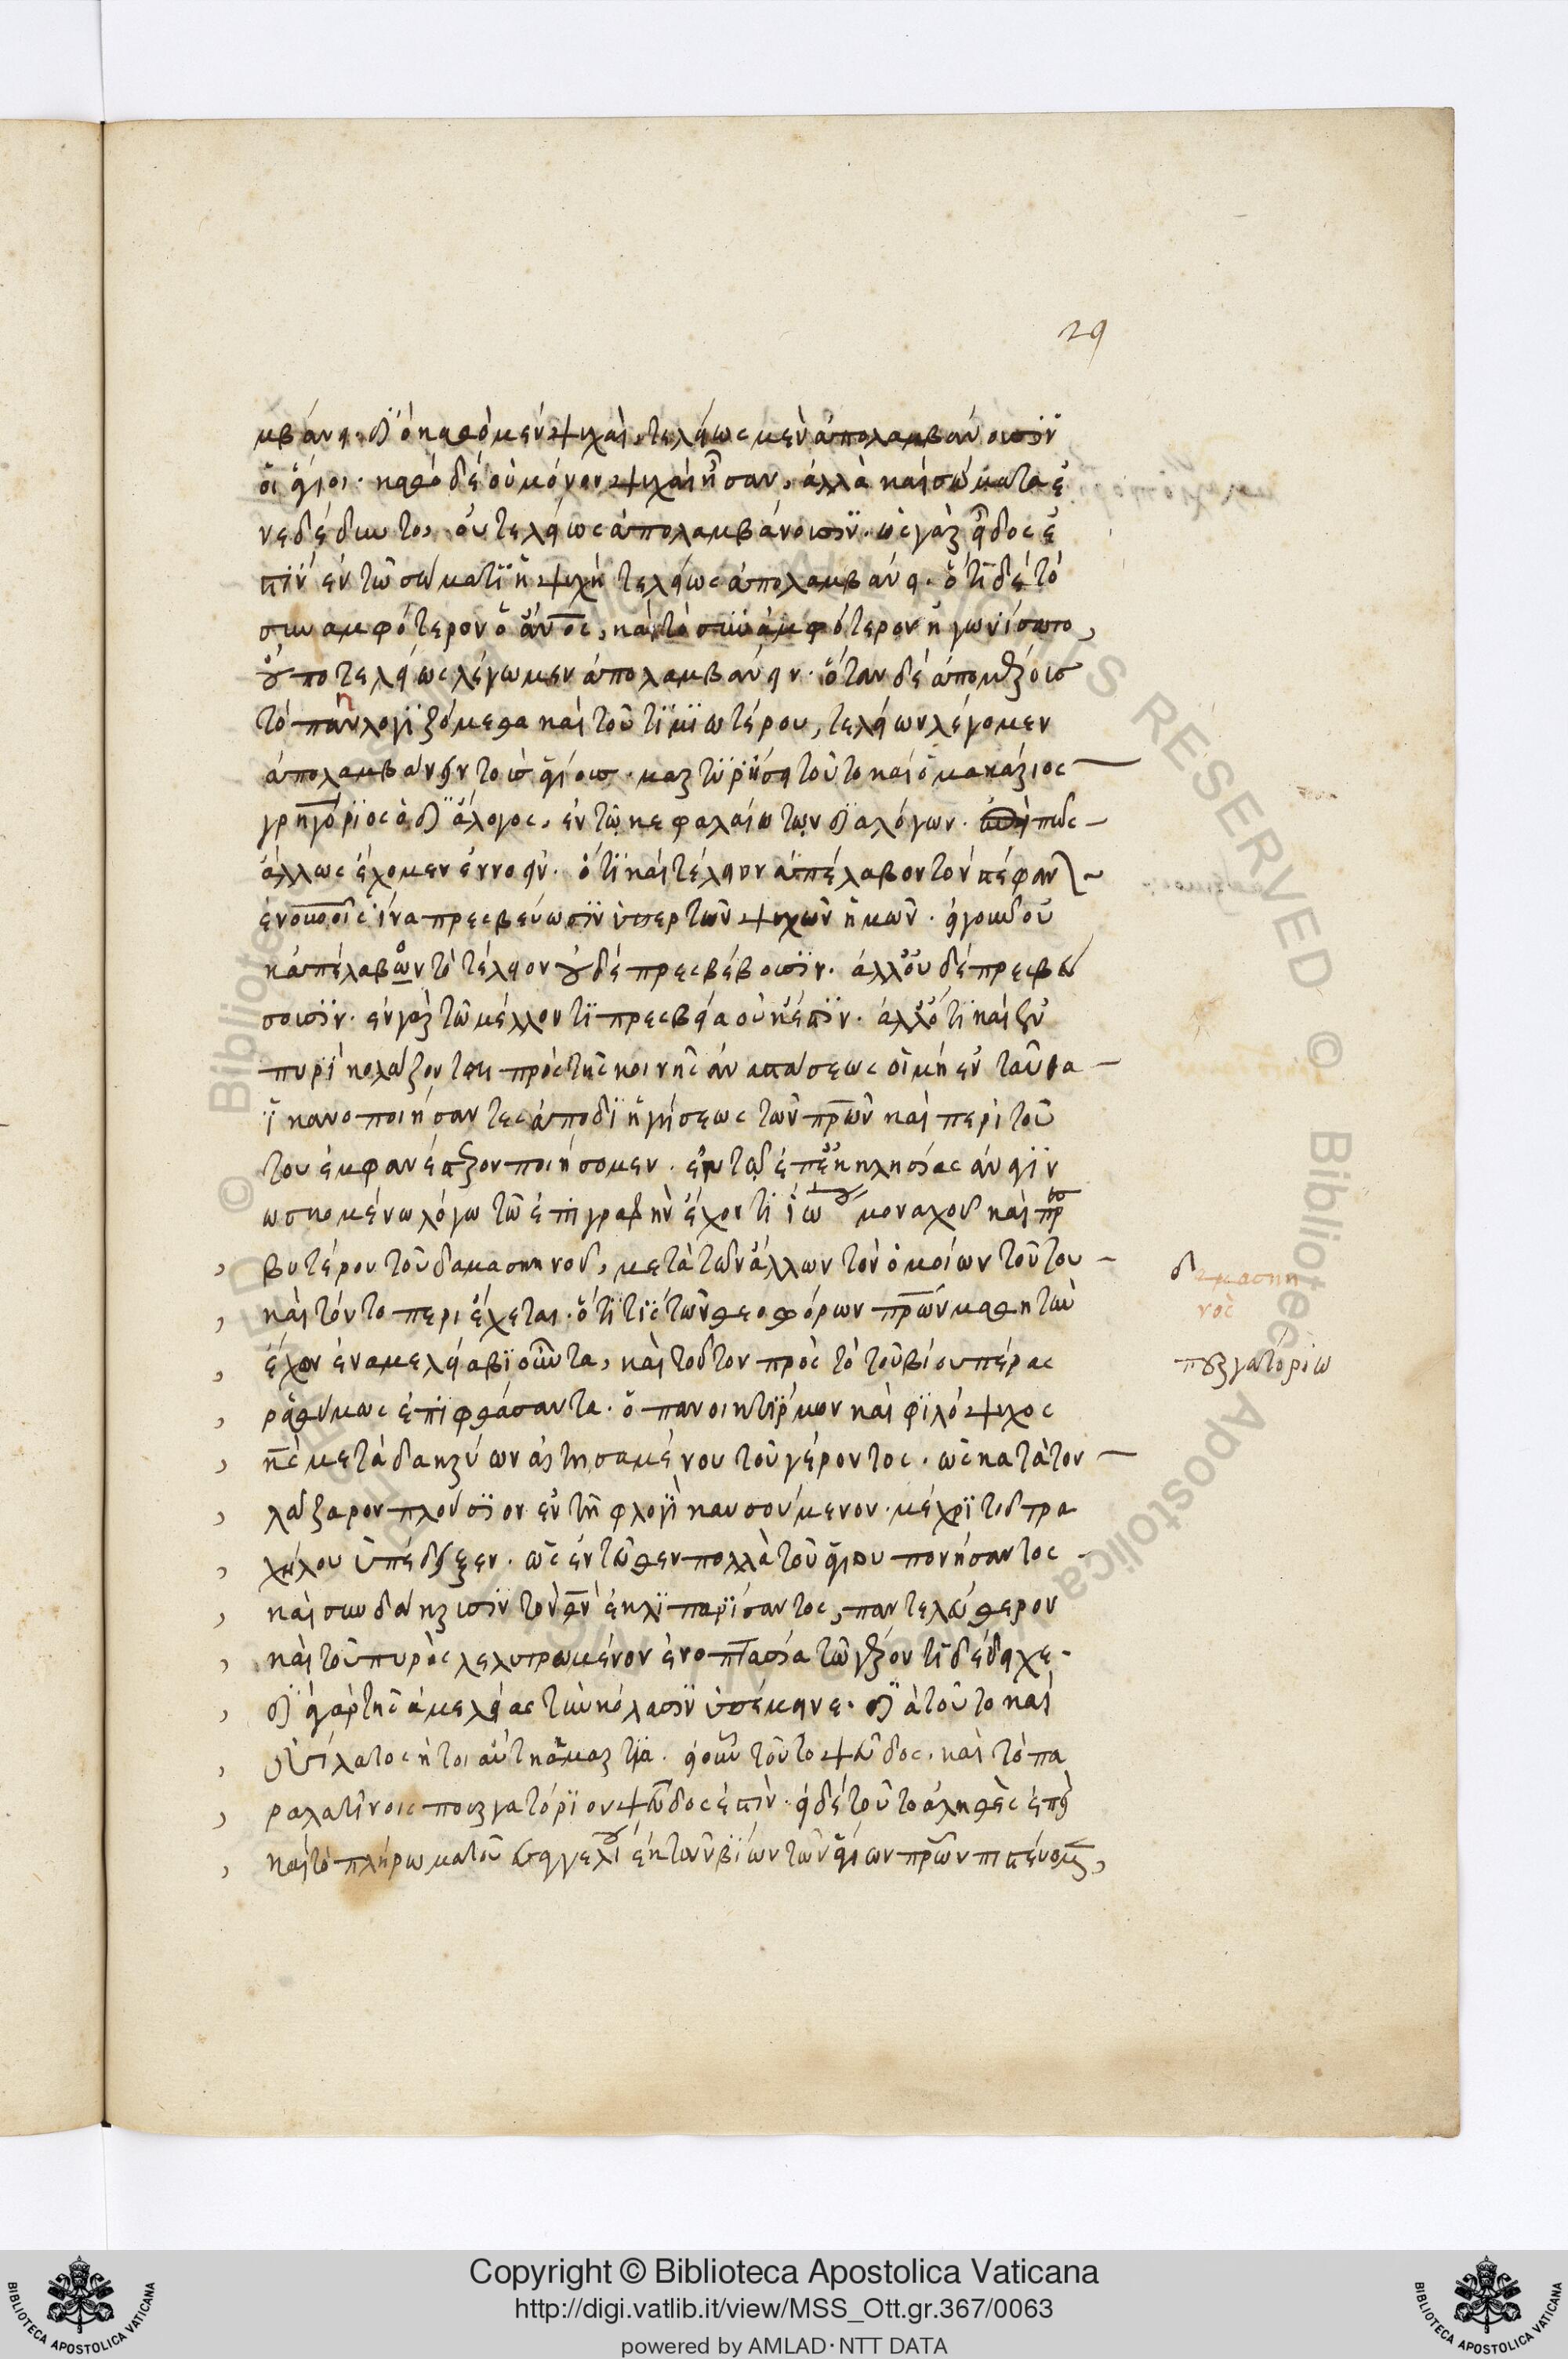 29
μβάνει. διὸ καθὸ μὲν ψυχαὶ, τελείως μὲν ἀπολαμβάνουσϊν
οἱ ἅγιοι. καθὸ δὲ οὐ μόνον ψυχαὶ ἦσαν, ἀλλὰ καὶ σώματα ἐ
νεδέδυντο, οὐ τελείως ἀπολαμβάνουσϊν. ὡς γὰρ εἶδος ἐ
στϊν ἐν τῶ σώματϊ ἡ ψυχὴ τελείως ἀπολαμβάνει. ὅτι δὲ τὸ
συναμφότερον ὁ ἄνος, καὶ τὸ συναμφότερον ἠγωνίσατο,
οὔπο τελείως λέγωμεν ἀπολαμβάνειν. ὅταν δὲ ἀπο μέρους
τὸ πὰν λογϊζόμεθα καὶ τοῦ τϊμϊωτέρου, τελείων λέγομεν
ἀπολαμβάνειν τοὺς ἁγίους. μαρτϋρήσει τοῦτο καὶ ὁ μακάριος
γρηγόρϊος ὁ δϊάλογος, ἐν τῶ κεφαλαίω τῶν δϊαλόγων. πῶς
ἄλλως ἔχομεν ἐννοεῖν. ὅτϊ καὶ τέλειον ἀπέλαβον τὸν στέφαν
ἐνους οἷς ἵνα πρεσβεύωσϊν ὑπερ τῶν ψυχῶν ἡμῶν. εἰ γουν οὐ
κ ἀπέλαβον τὸ τέλειον οὐδὲ πρεσβέβουσϊν. ἀλλ' οὐδὲ πρεσβεύ
σουσϊν. ἐν γὰρ τῶ μέλλοντϊ πρεσβεία οὐκ ἔστϊν. ἀλλ' ὅτϊ καὶ ξὺν
πυρϊ κολάζονται πρὸς τῆς κοινῆς ἀναστάσεως οἱ μὴ ἐν ταῦθα
ϊκανοποιήσαντες ἀπὸ δϊηγήσεως τῶν πρων καὶ περὶ τού
του ἐμφανέστερον ποιήσομεν. ἐν τῶ δὲ ἐπ' ἐκκλησίας ἀνϊϊν
ωσκομένω λόγω τῶ ἐπιγραφὴν ἔχοντϊ ἰω μοναχοῦ καὶ πρ
βυτέρου τοῦ δαμασκηνοῦ, μετὰ τῶν ἄλλων τῶν ὁμοίων τούτου
καὶ τόντο περιέχεται. ὅτϊ τϊς τῶν θεοφόρων πρων μαθητὴν
ἔχον ἐν ἀμελεία βϊοῦντα, καὶ τοῦτον πρὸς τὸ τοῦ βίου πέρας
ραθύμως ἐπϊφθάσαντα. ὁ πανοικτίρμων καὶ φϊλόψυχος
κς μετὰ δακρύων αἰτησαμένου τοῦ γέροντος. ὡς κατὰ τον
λάζαρον πλούσϊον ἐν τῆ φλογὶ καυσούμενον. μέχρϊ τοῦ τρα
χήλου ὑπέδειξεν. ὡς ἐντεῦθεν πολλὰ τοῦ ἁγίου πονήσαντος
καὶ συν δάκρυσϊν τὸν θν ἐκλϊπαρϊσαντος, παντελεύθερον
καὶ τοῦ πυρὸς λελυτρωμένον ἐν ὀπτασία τῶ γέροντϊ δέδειχε.
δϊ' ἃ γὰρ τῆς ἀμελείας τὴν κόλασϊν ὑπέμεινε. δϊὰ τοῦτο καὶ
ἤτοι αὐτὴ ἁμαρτία. εἰ οῦν τοῦτο ψεῦδος. καὶ τὸ πα
ρα λατίνοις πουργατόρϊον ψεῦδος ἐστϊν. εἰ δὲ τοῦτο ἀληθὲς ἐπεὶ
καὶ τὸ πλήρωμα τοῦ εὐαγγελί ἐκ τῶν βϊων τῶν ἁγίων πρων πιστεύομεν,
δαμασκη
νος
πουργατορίω
Copyright © Biblioteca Apostolica Vaticana
http://digi.vatlib.it/view/MSS_Ott.gr.367/0063
powered by AMLAD·NTT DATA
BIBLIOTECA APOSTOLICA VATICANA
BIBLIOTECA APOSTOLICA VATICANA